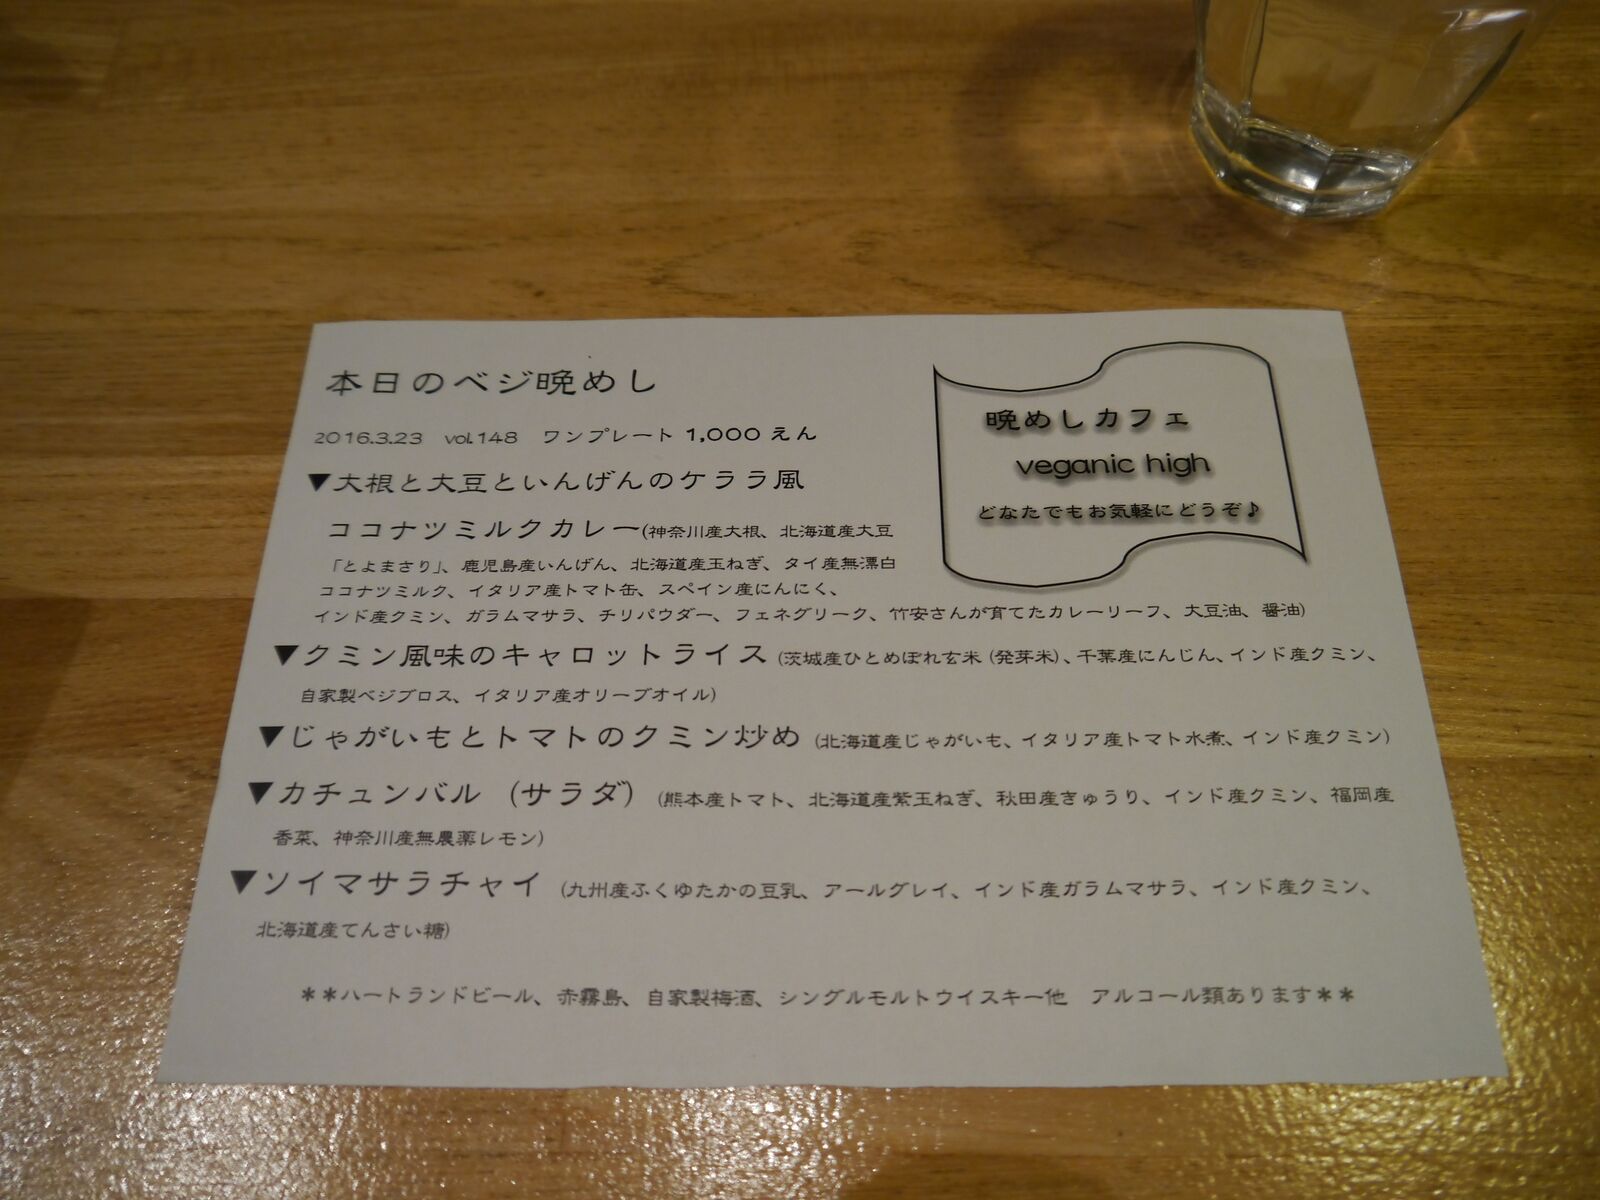 本日のベジ晩めし
2016.3.23 vol.148 ワンプレート 1,000 えん
▼大根と大豆といんげんのケララ風
ココナツミルクカレー(神奈川産大根、北海道産大豆
「とよまさり」、鹿児島産いんげん、北海道産玉ねぎ、タイ産無漂白
ココナツミルク、イタリア産トマト缶、スペイン産にんにく、
インド産クミン、ガラムマサラ、チリパウダー、フェネグリーク、竹安さんが育てたカレーリーフ、大豆油、醤油)
▼クミン風味のキャロットライス (茨城産ひとめぼれ玄米 (発芽米)、千葉産にんじん、インド産クミン、
自家製ベジブロス、イタリア産オリーブオイル)
▼じゃがいもとトマトのクミン炒め (北海道産じゃがいも、イタリア産トマト水煮、インド産クミン)
▼カチュンバル (サラダ) (熊本産トマト、北海道産紫玉ねぎ、秋田産きゅうり、インド産クミン、福岡産
香菜、神奈川産無農薬レモン)
▼ソイマサラチャイ (九州産ふくゆたかの豆乳、アールグレイ、インド産ガラムマサラ、インド産クミン、
北海道産てんさい糖)
**ハートランドビール、赤霧島、自家製梅酒、シングルモルトウイスキー他 アルコール類あります**
晩めしカフェ
veganic high
どなたでもお気軽にどうぞ♪